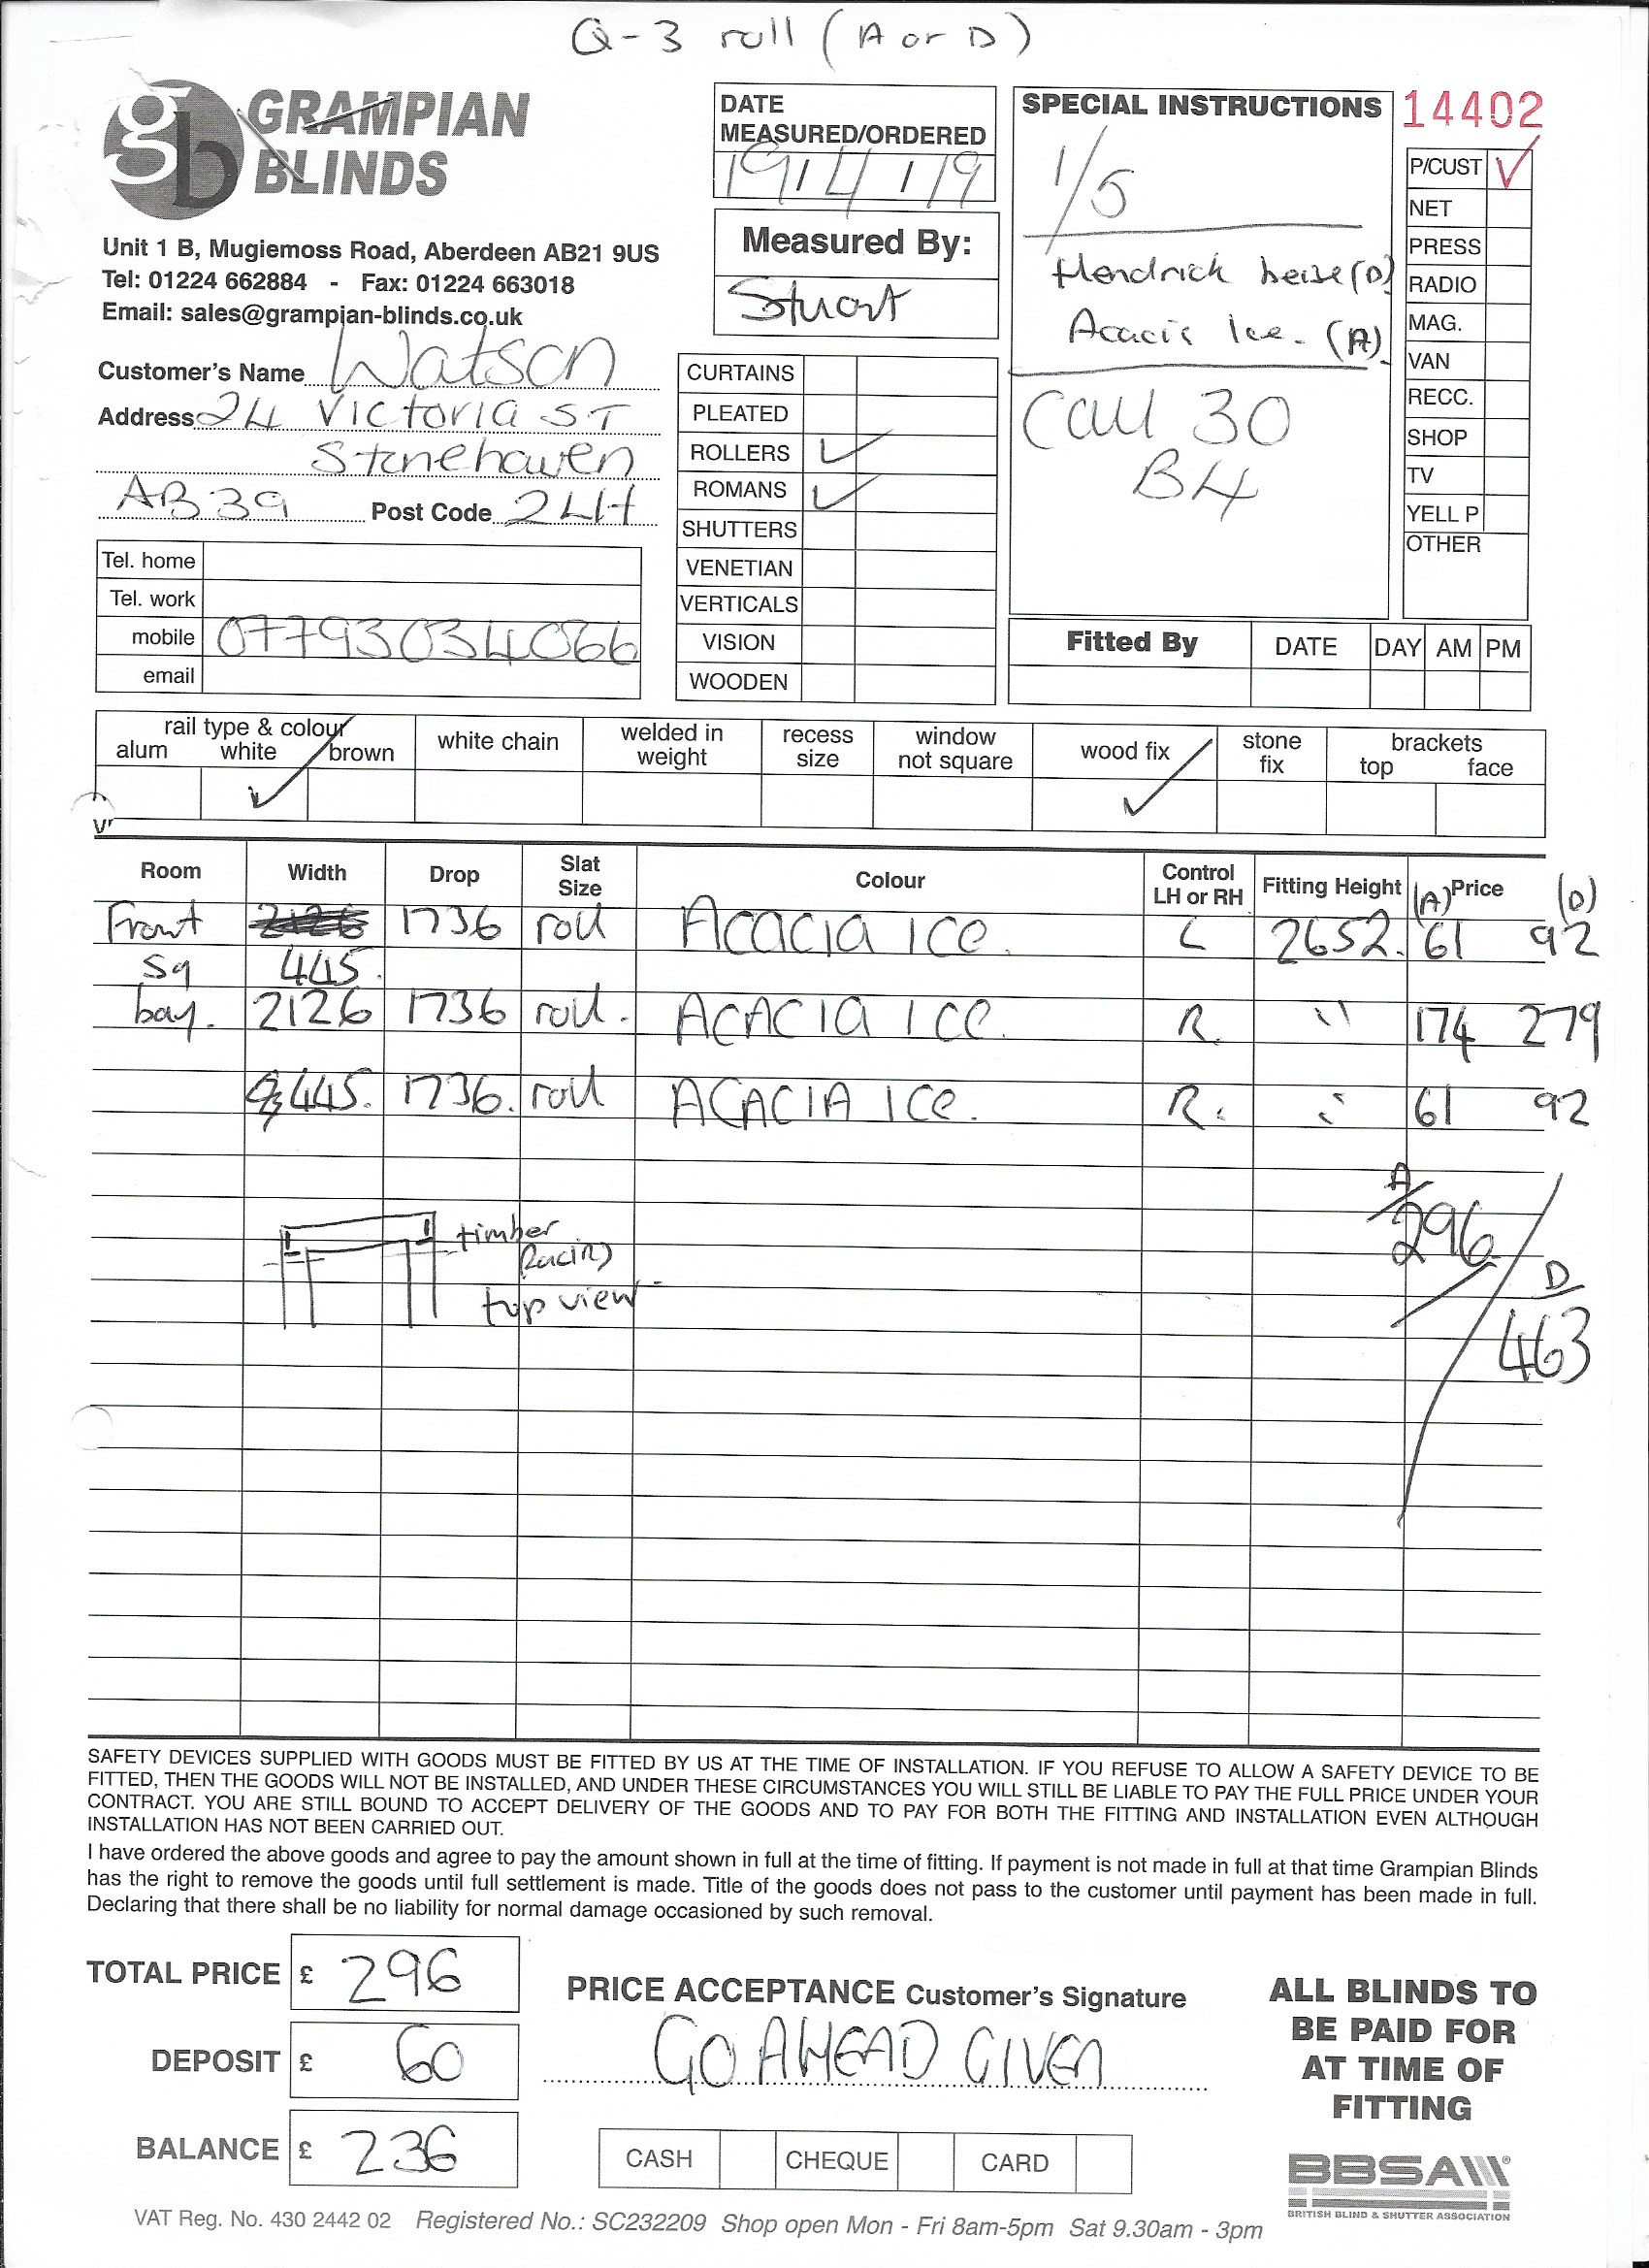 Q-3 roll (A or D)
gb GRAMPIAN
BLINDS
Unit 1 B, Mugiemoss Road, Aberdeen AB21 9US
Tel: 01224 662884 - Fax: 01224 663018
Email: sales@grampian-blinds.co.uk
Customer's Name Watson
Address 24 Victoria ST
Stonehaven
AB39 Post Code 2LH
Tel. home
Tel. work
mobile 07793034066
email
DATE
MEASURED/ORDERED
19/4/19
Measured By:
Stuart
CURTAINS
PLEATED
ROLLERS ✓
ROMANS ✓
SHUTTERS
VENETIAN
VERTICALS
VISION
WOODEN
SPECIAL INSTRUCTIONS
1/5
Hendrick beise (D)
Acacis Ice. (A)
Call 30
B4
14402
P/CUST ✓
NET
PRESS
RADIO
MAG.
VAN
RECC.
SHOP
TV
YELL P
OTHER
Fitted By DATE DAY AM PM
rail type & colour
alum white brown
white chain
welded in
weight
recess
size
window
not square
wood fix
stone
fix
brackets
top face
✓ ✓
Room Width Drop Slat Size Colour Control LH or RH Fitting Height (A) Price (D)
Front 2126 1736 roll Acacia Ice. L 2652. 61 92
Sq 445.
bay. 2126 1736 roll. ACACIA ICE. R. " 174 279
445. 1736. roll ACACIA ICE. R. " 61 92
A
296
D
463
timber
facing
top view
SAFETY DEVICES SUPPLIED WITH GOODS MUST BE FITTED BY US AT THE TIME OF INSTALLATION. IF YOU REFUSE TO ALLOW A SAFETY DEVICE TO BE
FITTED, THEN THE GOODS WILL NOT BE INSTALLED, AND UNDER THESE CIRCUMSTANCES YOU WILL STILL BE LIABLE TO PAY THE FULL PRICE UNDER YOUR
CONTRACT. YOU ARE STILL BOUND TO ACCEPT DELIVERY OF THE GOODS AND TO PAY FOR BOTH THE FITTING AND INSTALLATION EVEN ALTHOUGH
INSTALLATION HAS NOT BEEN CARRIED OUT.
I have ordered the above goods and agree to pay the amount shown in full at the time of fitting. If payment is not made in full at that time Grampian Blinds
has the right to remove the goods until full settlement is made. Title of the goods does not pass to the customer until payment has been made in full.
Declaring that there shall be no liability for normal damage occasioned by such removal.
TOTAL PRICE £ 296
DEPOSIT £ 60
BALANCE £ 236
PRICE ACCEPTANCE Customer's Signature
GO AHEAD GIVEN
CASH CHEQUE CARD
ALL BLINDS TO
BE PAID FOR
AT TIME OF
FITTING
BBSA
BRITISH BLIND & SHUTTER ASSOCIATION
VAT Reg. No. 430 2442 02 Registered No.: SC232209 Shop open Mon - Fri 8am-5pm Sat 9.30am - 3pm